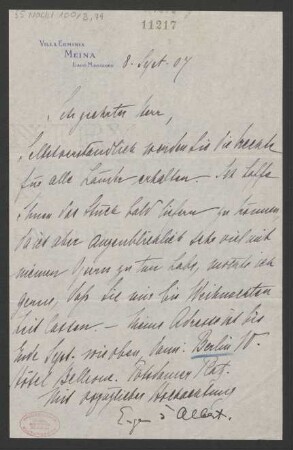 11217
Villa Erminia
Meina
Lago Maggiore
8. Sept. 07
Sehr geehrter Herr,
Selbstverständlich werden Sie die Rechte
für alle Länder erhalten. Ich hoffe
Ihnen das Stück bald liefern zu können
Da ich aber augenblicklich sehr viel mit
meinen Opern zu tun habe, möchte ich
gerne, daß Sie mir bis Weihnachten
Zeit lassen. — Meine Adresse ist bis
Ende Sept. wie oben, dann: Berlin W.
Hôtel Bellevue. Potsdamer Plat.
Mit vorzüglicher Hochachtung
Eugen d'Albert.